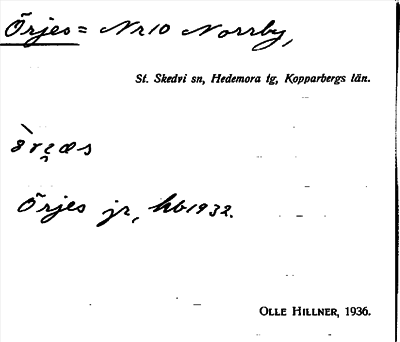 Örjes = Nr 10 Norrby,
St. Skedvi sn, Hedemora tg, Kopparbergs län.
Örjes jr, hb 1932.
OLLE HILLNER, 1936.